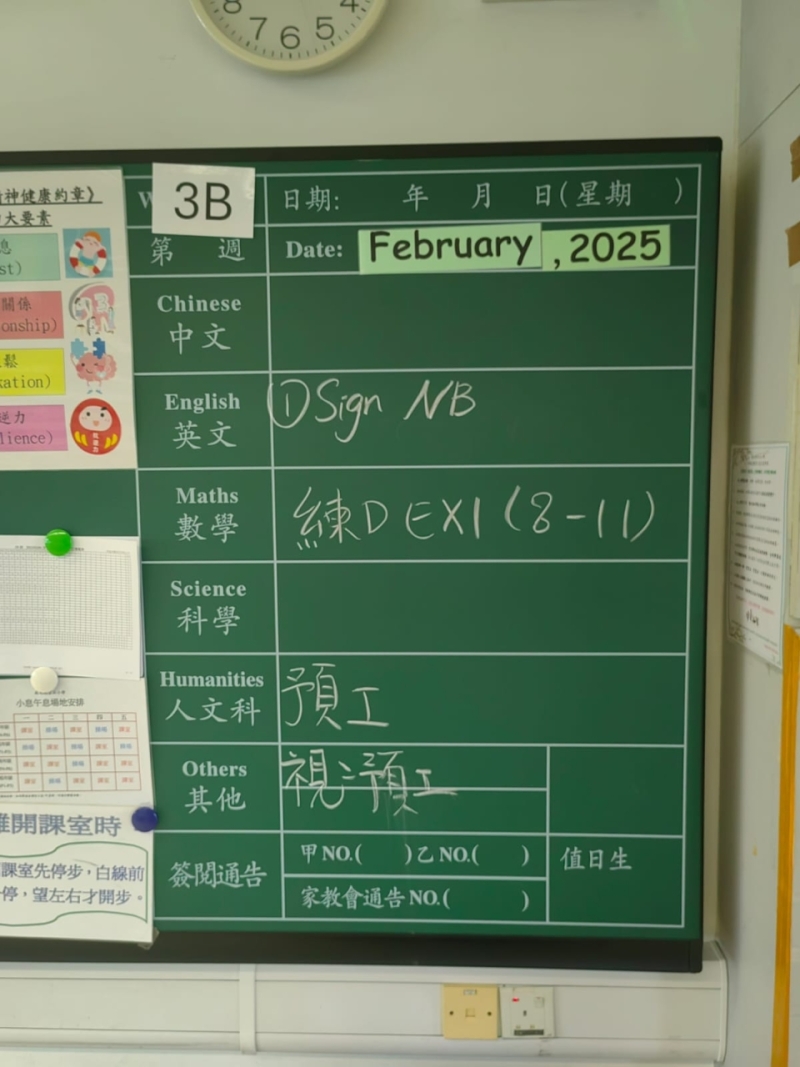 8 7 6 5 4
神健康約章》
大要素
息
st)
關係
onship)
鬆
xation)
逆力
lience)
小息午息場地安排
一 二 三 四 五
離開課室時
課室先停步，白線前
停，望左右才開步。
3B
日期: 年 月 日(星期 )
第 週
Date: February , 2025
Chinese
中文
English
英文
① Sign NB
Maths
數學
練D EX1 (8-11)
Science
科學
Humanities
人文科
預工
Others
其他
視:預工
簽閱通告
甲NO.( )乙NO.( )
家教會通告NO.( )
值日生